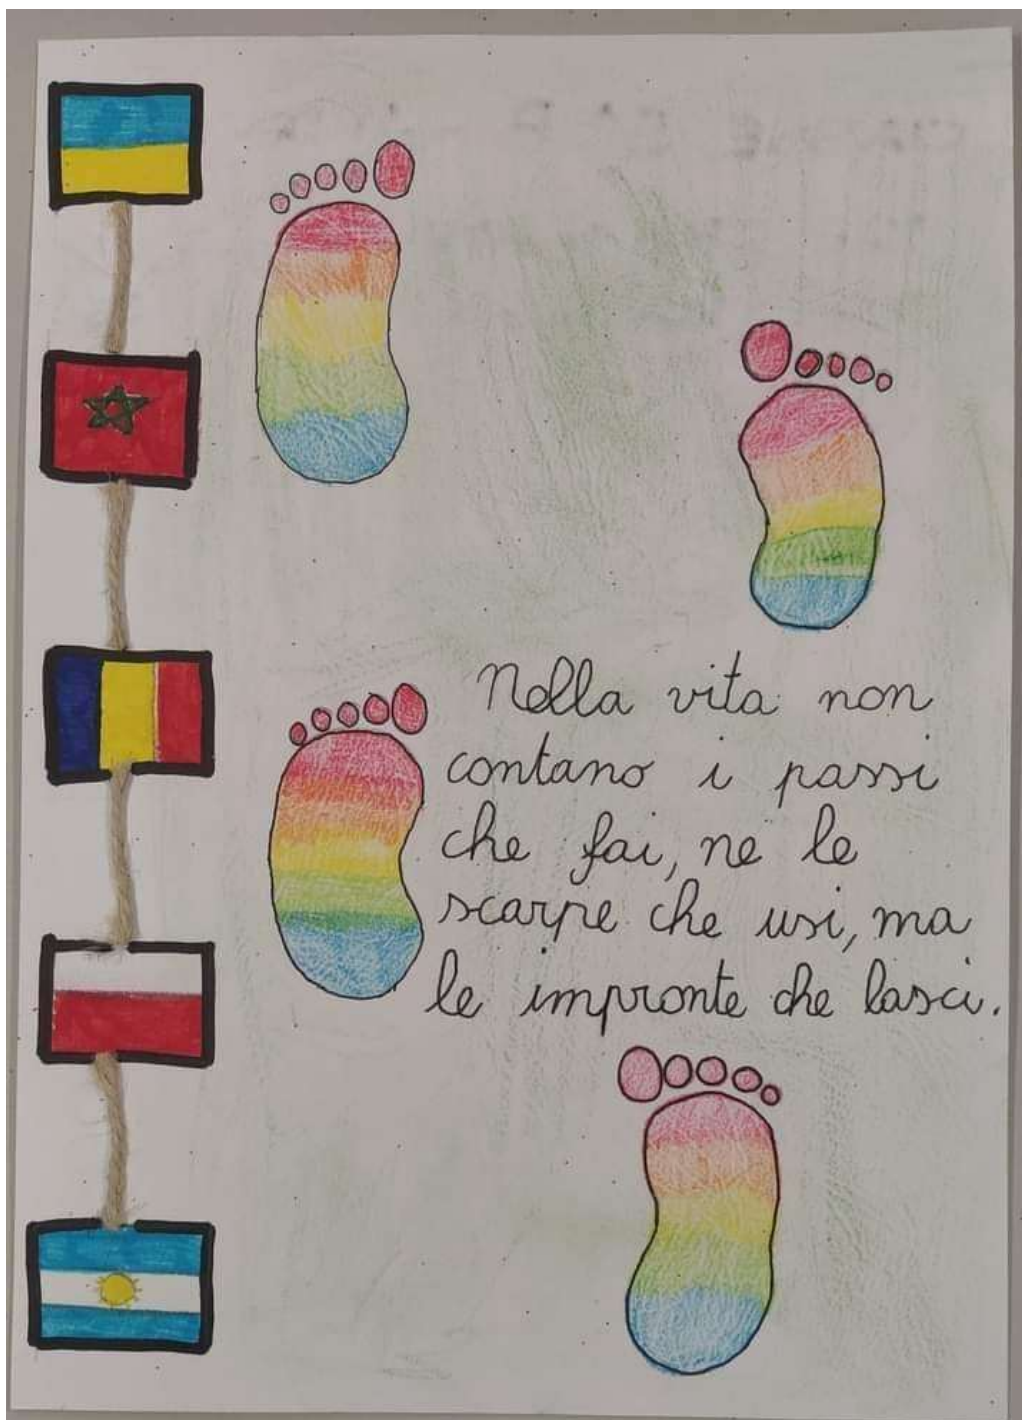 Nella vita non
contano i passi
che fai, ne le
scarpe che usi, ma
le impronte che lasci.